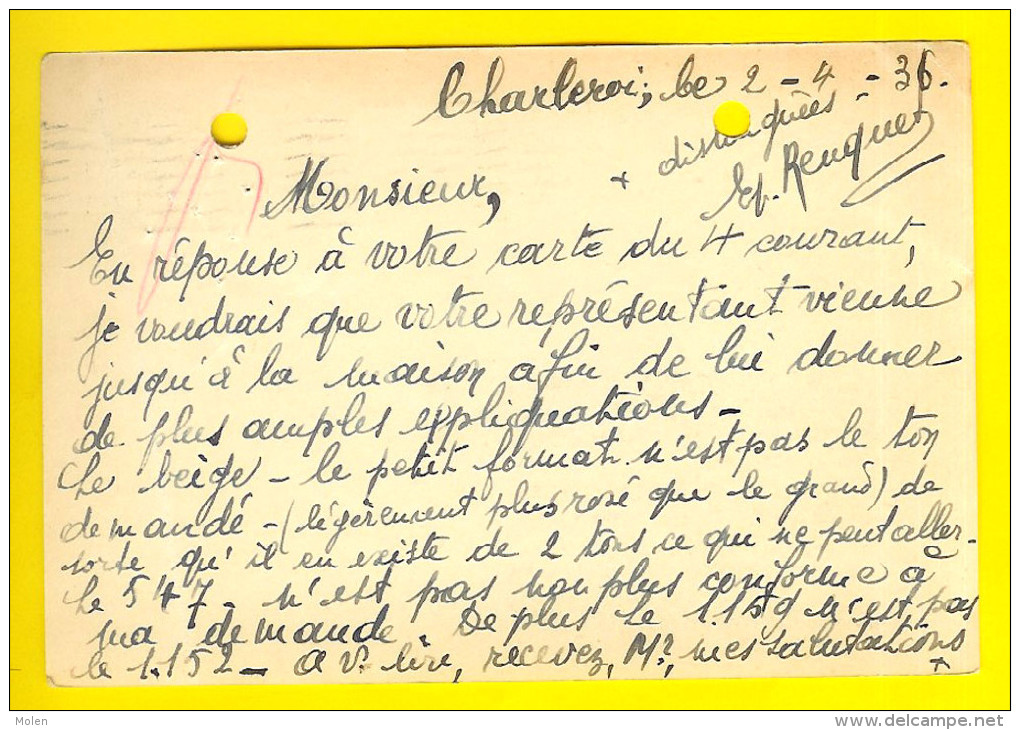 Charleroi, le 2 - 4 - 36.
Monsieur,
En réponse à votre carte du 4 courant,
je voudrais que votre représentant vienne
jusqu'à la maison afin de lui donner
de plus amples appliquations -
Le beige - le petit format n'est pas le ton
demandé - (légèrement plus rosé que le grand) de
sorte qu'il en existe de 2 tons ce qui ne peut aller -
Le 547 - n'est pas non plus conforme à
ma demande. De plus le 1.159 n'est pas
le 1.152 - A v. lire, recevez, Mr, mes salutations +
+ distinguées
Renquet
Molen
http://www.delcampe.net